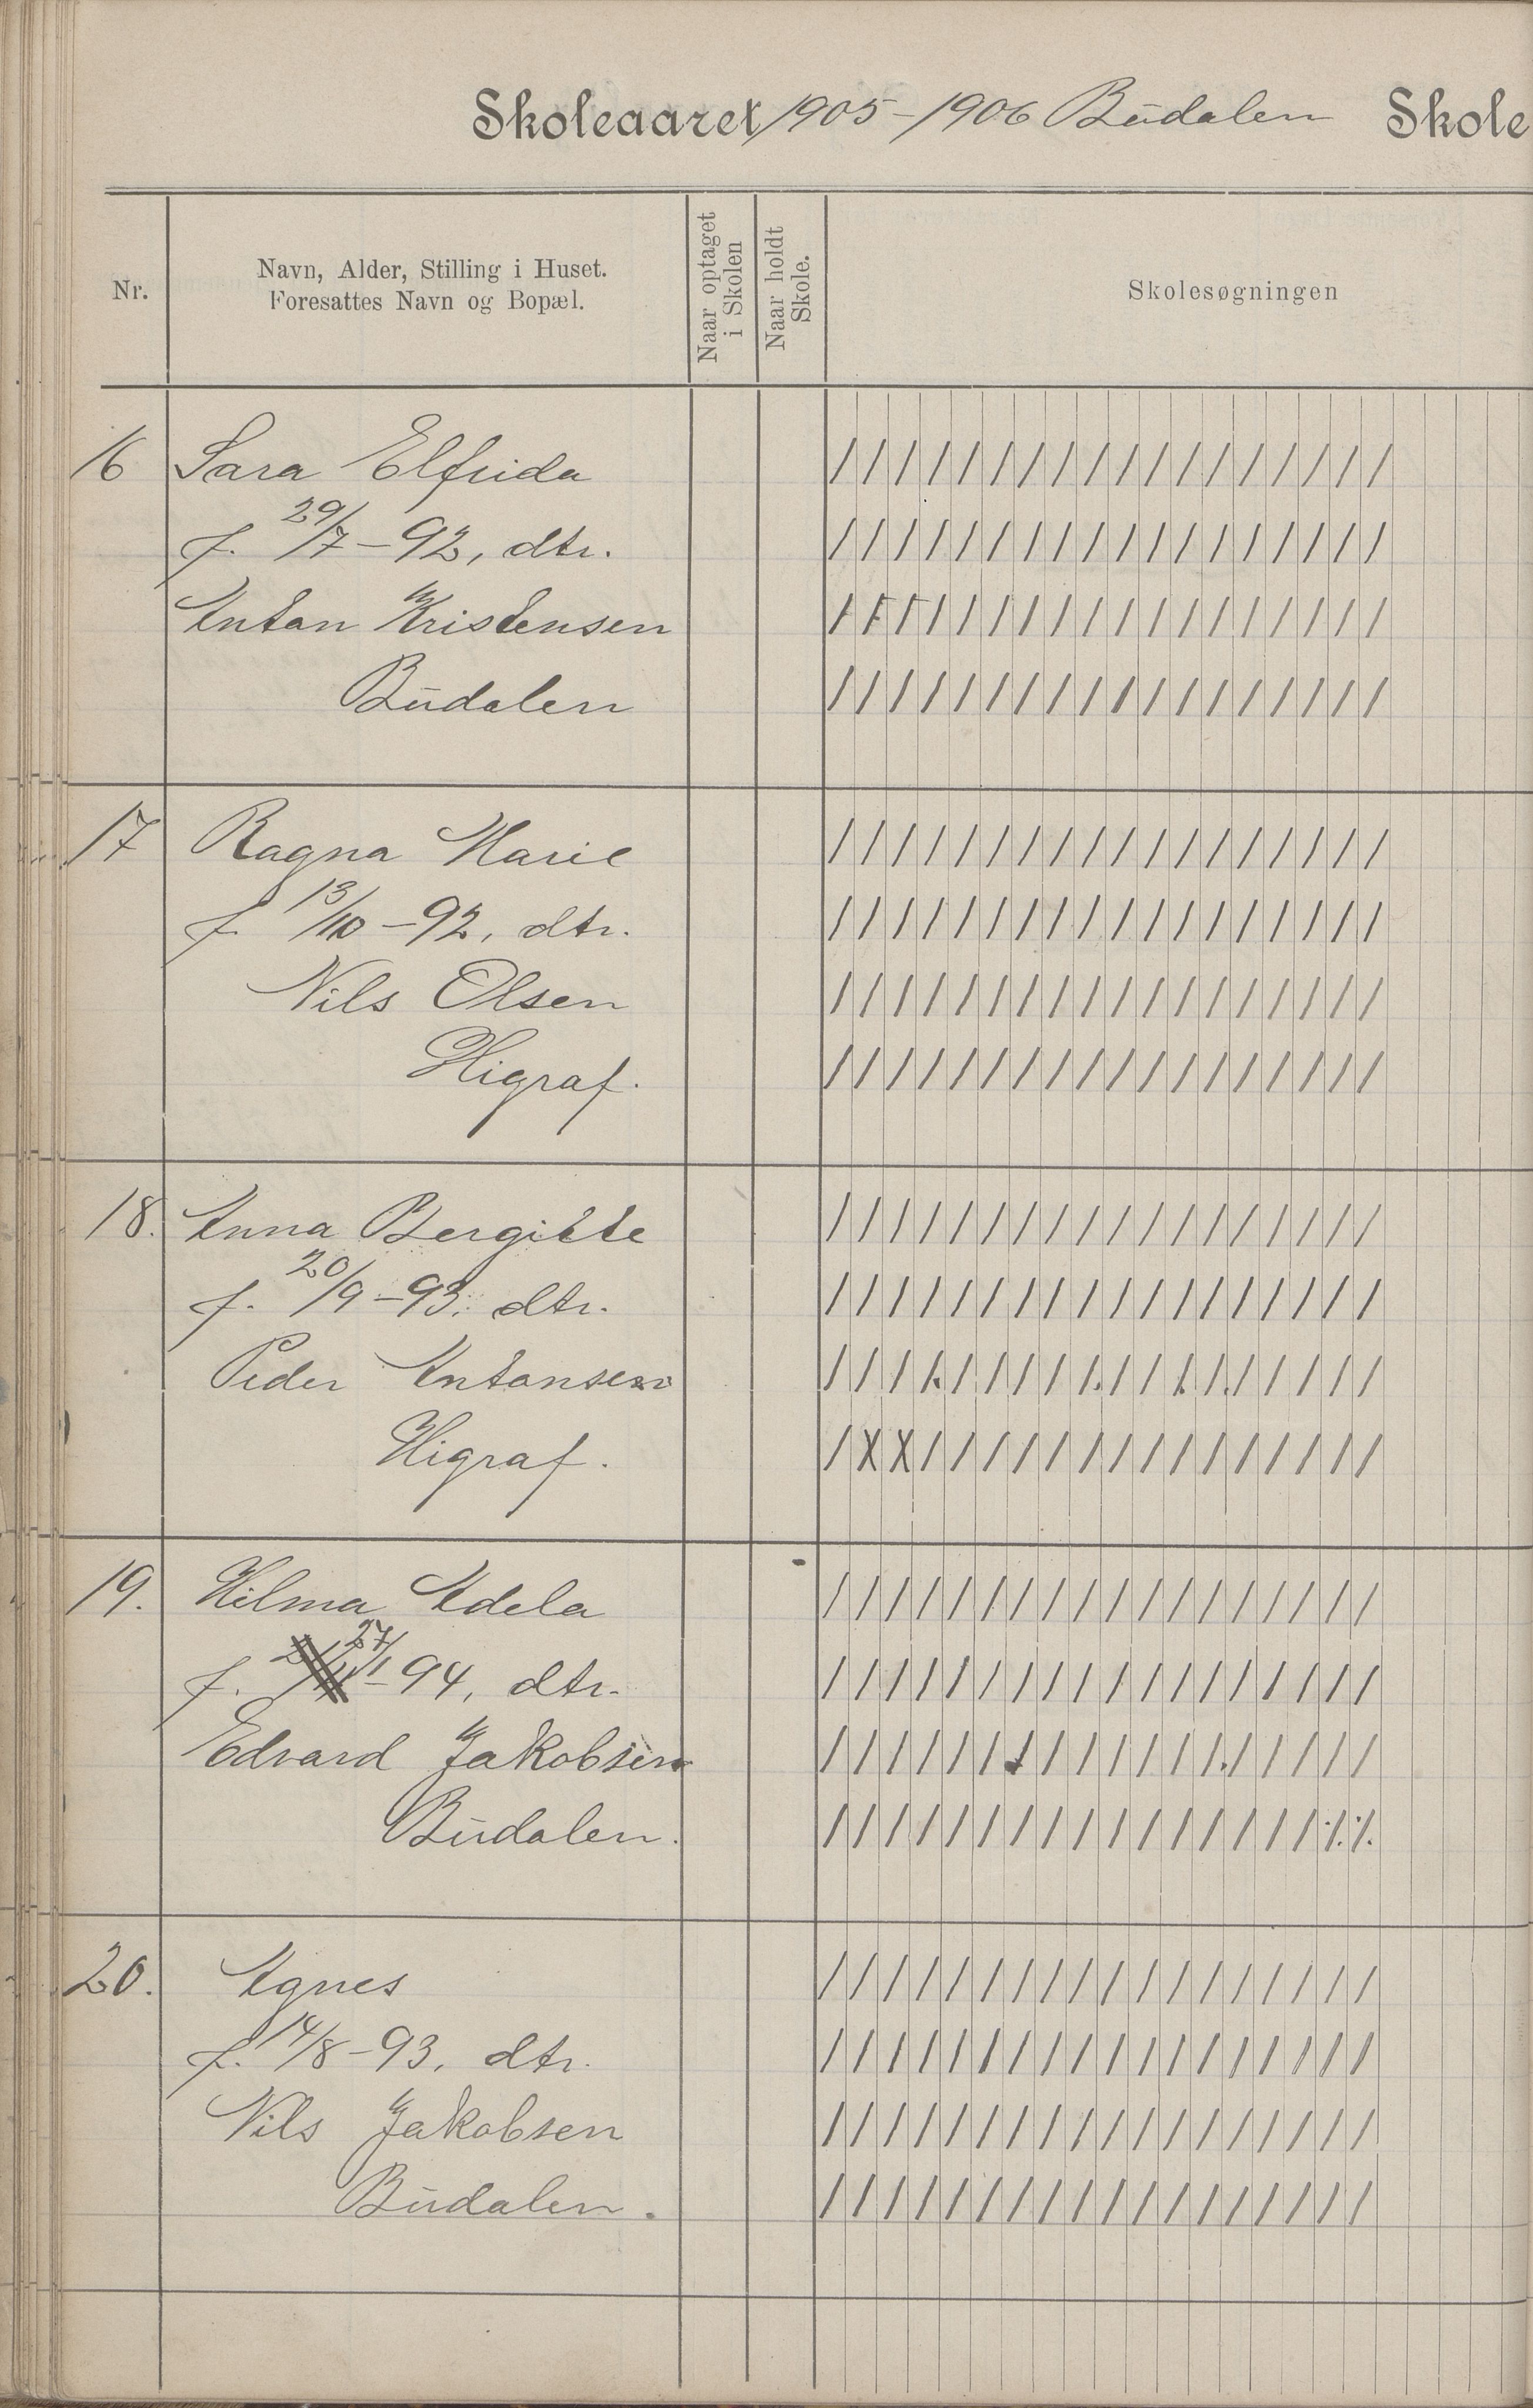 Skoleaaret 1905-1906 Būdalen Skole
Nr.
Navn, Alder, Stilling i Huset.
Foresattes Navn og Bopæl.
Naar optaget
i Skolen
Naar holdt
Skole.
Skolesøgningen
16 Sara Elfrida
f. 29/7-92, dtr.
Anton Kristensen
Būdalen
17 Ragna Marie
f. 13/10-92, dtr.
Nils Olsen
Higraf.
18. Anna Bergitte
f. 20/9-93. dtr.
Peder Antonsen
Higraf.
19. Hilma Adela
f. 27/1-94, dtr.
Edvard Jakobsen
Būdalen.
20. Agnes
f. 14/8-93. dtr.
Nils Jakobsen
Būdalen.